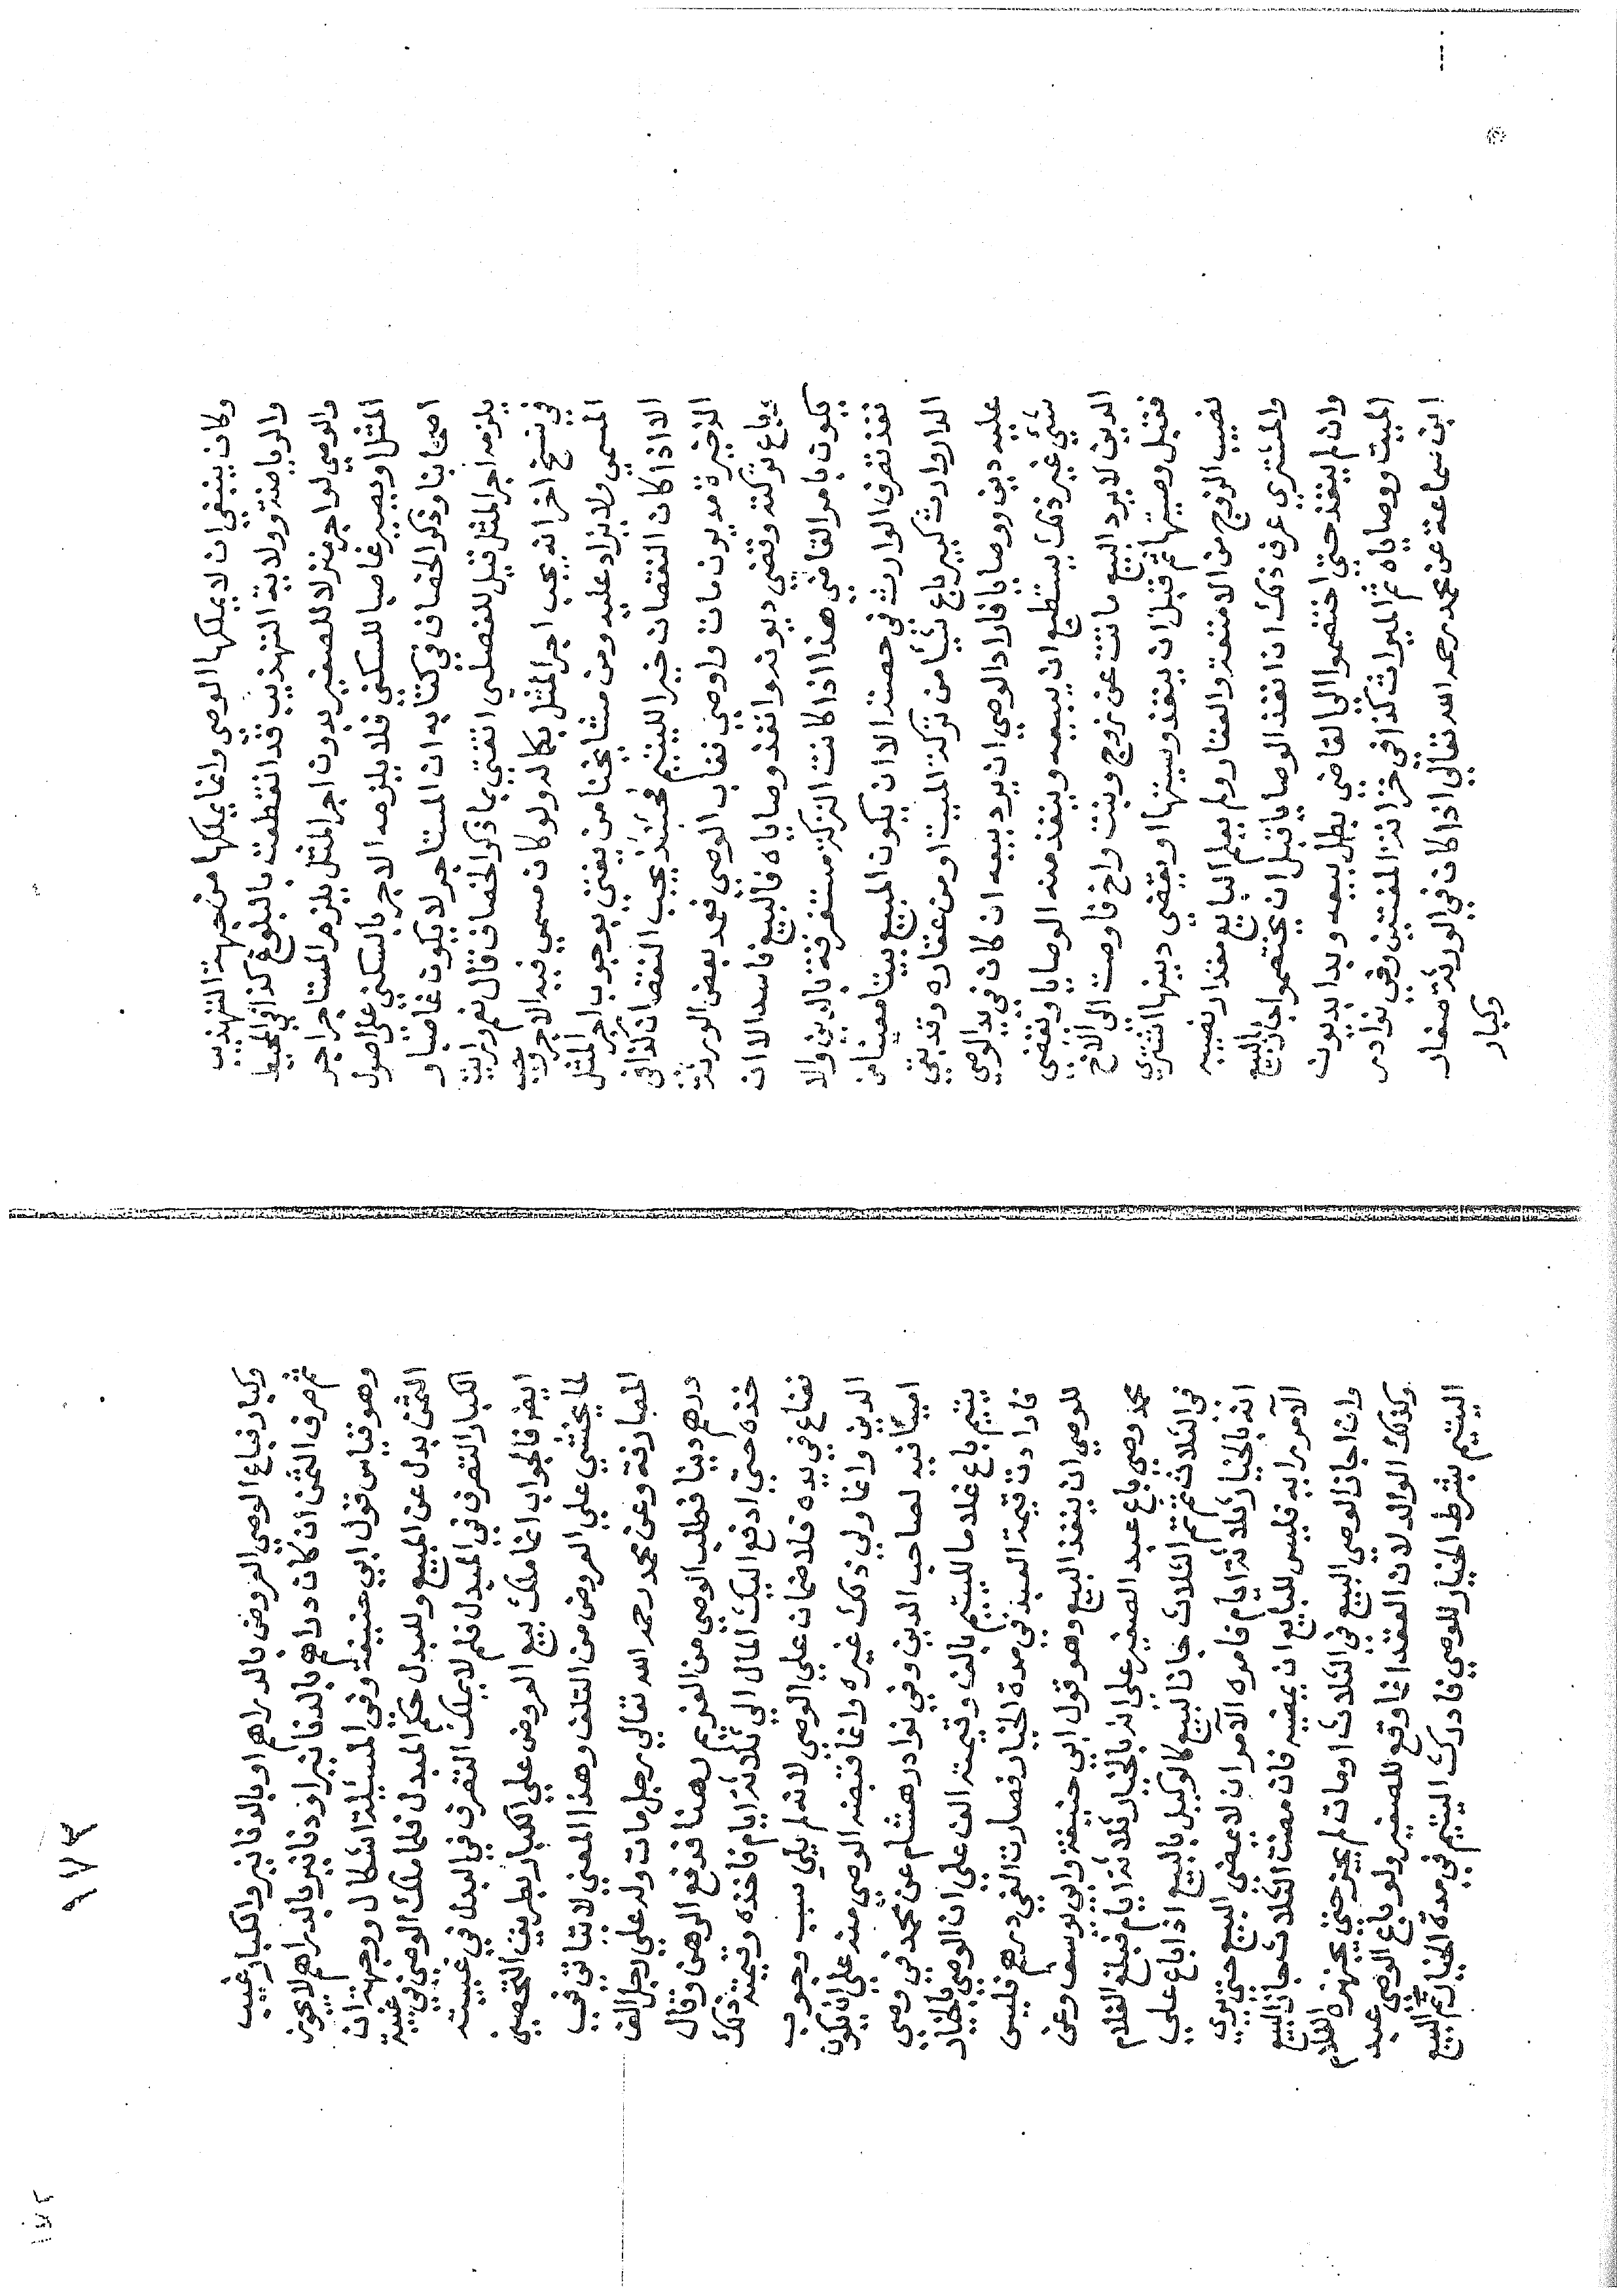 وكان ينبغي ان لا يملكها الوصي وانما يملكها من جهة التهذيب
والرياضة وولاية التهذيب قد انقطعت بالبلوغ كذا في المحيط
والوصي لو اجر منزلا للصغير بدون اجر المثل يلزم المستاجر اجر
المثل او يصير غاصبا للسكني فلا يلزمه الاجر بالسكني علي اصول
اصحابنا وذكر الخصاف في كتابه ان المستاجر لا يكون غاصبا و
يلزمه اجر المثل قيل للفضلي اتفتي بما ذكر الخصاف قال نعم ورايت
في نسخ اخر انه يجب اجر المثل بكماله ولو كان مسمي فيه الاجر يجب
المسمي ولا يزاد عليه ومن مشايخنا من يفتي بوجوب اجر المثل
الا اذا كان النقصان خيرا لليتيم فحينئذ يجب النقصان كذا في
الذخيرة مديون مات واوصي فغاب الوصي فعمد بعض الورثة
وباع تركته وقضي ديونه وانفذ وصاياه فالبيع فاسد الا ان
يكون بامر القاضي هذا اذا كانت التركة مستغرقة بالدين والا
نفذ تصرف الوارث في حصته الا ان يكون المبيع بيتا معينا من
الدار وارث كبير باع شيئا من تركة الميت او من عقاره وقد بقي
عليه دين ووصايا فاراد الوصي ان يرد بيعه ان كان في يد الوصي
شئ غير ذلك يستطيع ان يبيعه وينفذ منه الوصايا ويقضي
الدين لا يرد البيع ماتت عن زوج وبنت واخ فاوصت الي الاخ
فقبل وصيتها ثم قبل ان ينفذ وصيتها او يقضي دينها اشتري
نصيب الزوج من الامتعة والعقار ولم يعلم البايع مقدار نصيبه
والمشتري عرف ذلك ان انفذ الوصايا قبل ان يختصموا جاز البيع
وان لم ينفذ حتي اختصموا الي القاضي يبطل بيعه ويبدا بديون
الميت ووصاياه ثم الميراث كذا في خزانة المفتين وفي نوادر
ابن سماعة عن محمد رحمه الله تعالي اذا كان في الورثة صغار
وكبار
٩٧٣
وكبار فباع الوصي العروض بالدراهم او بالدنانير والكبار غيب
ثم صرف الثمن ان كان دراهم بالدنانير او دنانير بالدراهم لا يجوز
وهو قياس قول ابي حنيفة وفي المسيلة اشكال ووجهه ان
الثمن بدل عن المبيع وللبدل حكم المبدل فلما ملك الوصي في غيبة
الكبار التصرف في المبدل فلم لا يملك التصرف في البدل في غيبة
ايضا فالجواب انما ملك بيع العروض علي الكبار بطريق التحصين
لما يخشي علي العروض من التلف وهذا المعني لا يتاتي في
المصارفة وعن محمد رحمه الله تعالي رجل مات وله علي رجل الف
درهم دينا فطلب الوصي من الغريم رهنا فدفع الرهن وقال
خذه حتي ادفع اليك المال الي ثلاثة ايام فاخذه وقيمته ذلك
فضاع في يده فلا ضمان علي الوصي لانه لم يلي سبب وجوب
الدين وانما ولي ذلك غيره وانما قبضه الوصي منه علي ان يكون
امينا فيه لصاحب الدين وفي نوادر هشام عن محمد في وصي
يتيم باع غلاما لليتيم بالف وقيمته الف علي ان الوصي بالخيار
فازدادت قيمة العبد في مدة الخيار فصارت الفي درهم فليس
للوصي ان ينفذ البيع وهو قول ابي حنيفة وابي يوسف وعن
محمد وصي باع عبد الصغير علي انه بالخيار ثلاثة ايام فبلغ الغلام
في الثلاث ثم تم الثلاث جاز البيع كالوكيل بالبيع اذا باع علي
انه بالخيار ثلاثة ايام فامره الآمر ان لا يمضي البيع حتي يري
الآمر رايه فليس للبايع ان يمضيه فان مضت الثلاث جاز البيع
وان اجاز الوصي البيع في الثلاث او مات لم يجز حتي يجيزه الغلام
وكذلك الوالد لان العقد انما وقع للصغير ولو باع الوصي عبد
اليتيم بشرط الخيار للوصي فادرك اليتيم في مدة الخيار تم البيع